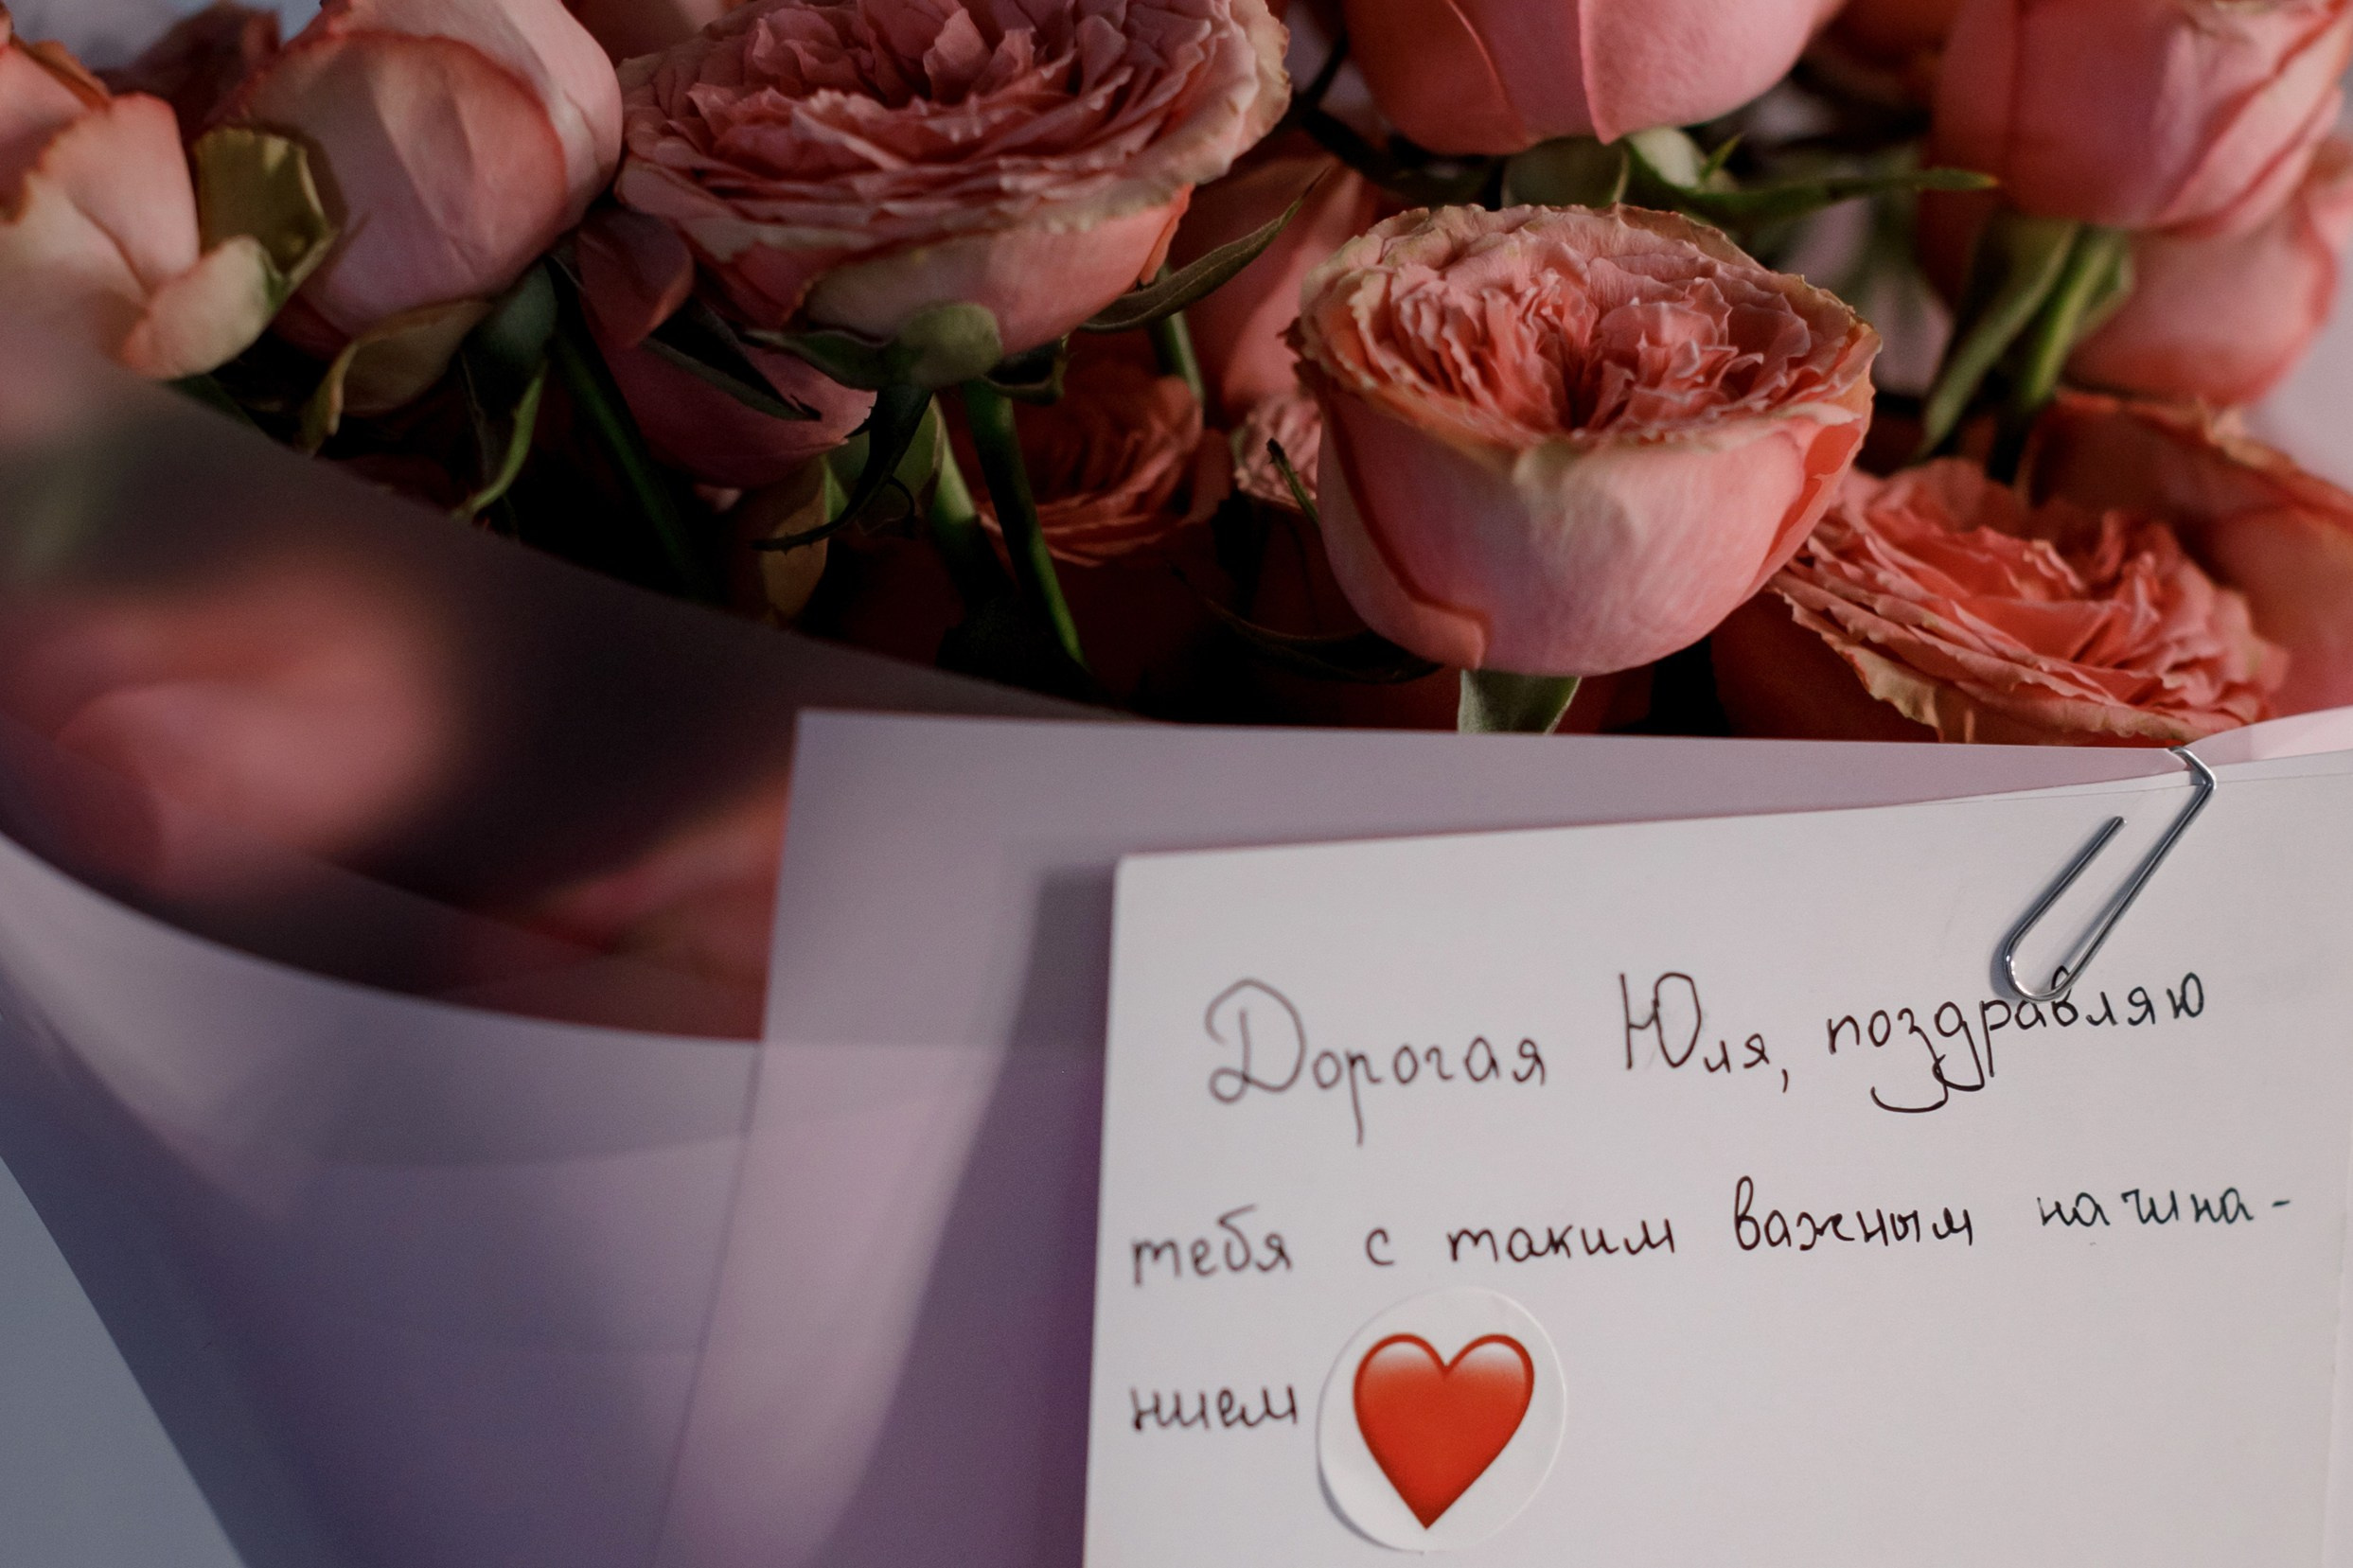 Дорогая Юля, поздравляю
тебя с таким важным начина-
нием